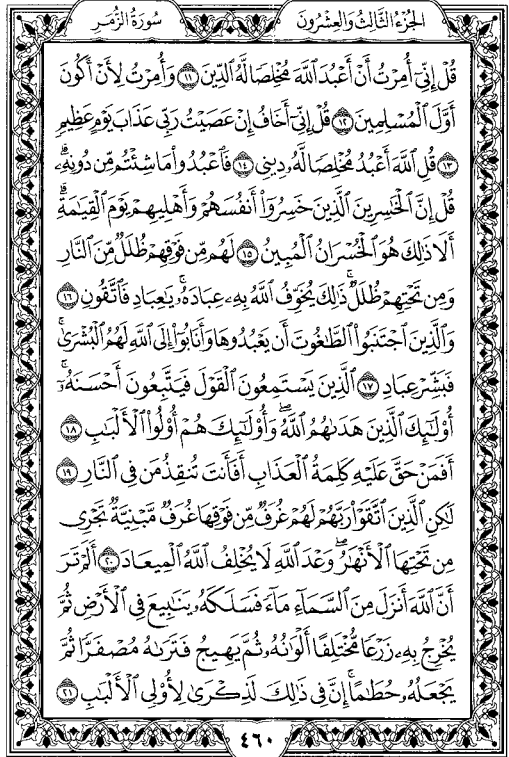 سُورَةُ الزُّمَرِ
الجُزءُ الثَّالِثُ وَالعِشْرُونَ
قُلْ إِنِّيٓ أُمِرْتُ أَنْ أَعْبُدَ ٱللَّهَ مُخْلِصًا لَّهُ ٱلدِّينَ ١١ وَأُمِرْتُ لِأَنْ أَكُونَ
أَوَّلَ ٱلْمُسْلِمِينَ ١٢ قُلْ إِنِّيٓ أَخَافُ إِنْ عَصَيْتُ رَبِّي عَذَابَ يَوْمٍ عَظِيمٍ
١٣ قُلِ ٱللَّهَ أَعْبُدُ مُخْلِصًا لَّهُۥ دِينِي ١٤ فَٱعْبُدُوا۟ مَا شِئْتُم مِّن دُونِهِۦۗ
قُلْ إِنَّ ٱلْخَٰسِرِينَ ٱلَّذِينَ خَسِرُوٓا۟ أَنفُسَهُمْ وَأَهْلِيهِمْ يَوْمَ ٱلْقِيَٰمَةِۗ
أَلَا ذَٰلِكَ هُوَ ٱلْخُسْرَانُ ٱلْمُبِينُ ١٥ لَهُم مِّن فَوْقِهِمْ ظُلَلٌ مِّنَ ٱلنَّارِ
وَمِن تَحْتِهِمْ ظُلَلٌۚ ذَٰلِكَ يُخَوِّفُ ٱللَّهُ بِهِۦ عِبَادَهُۥۚ يَٰعِبَادِ فَٱتَّقُونِ ١٦
وَٱلَّذِينَ ٱجْتَنَبُوا۟ ٱلطَّٰغُوتَ أَن يَعْبُدُوهَا وَأَنَابُوٓا۟ إِلَى ٱللَّهِ لَهُمُ ٱلْبُشْرَىٰۚ
فَبَشِّرْ عِبَادِ ١٧ ٱلَّذِينَ يَسْتَمِعُونَ ٱلْقَوْلَ فَيَتَّبِعُونَ أَحْسَنَهُۥٓۚ
أُو۟لَٰٓئِكَ ٱلَّذِينَ هَدَىٰهُمُ ٱللَّهُۖ وَأُو۟لَٰٓئِكَ هُمْ أُو۟لُوا۟ ٱلْأَلْبَٰبِ ١٨
أَفَمَنْ حَقَّ عَلَيْهِ كَلِمَةُ ٱلْعَذَابِ أَفَأَنتَ تُنقِذُ مَن فِي ٱلنَّارِ ١٩
لَٰكِنِ ٱلَّذِينَ ٱتَّقَوْا۟ رَبَّهُمْ لَهُمْ غُرَفٌ مِّن فَوْقِهَا غُرَفٌ مَّبْنِيَّةٌ تَجْرِي
مِن تَحْتِهَا ٱلْأَنْهَٰرُۖ وَعْدَ ٱللَّهِ لَا يُخْلِفُ ٱللَّهُ ٱلْمِيعَادَ ٢٠ أَلَمْ تَرَ
أَنَّ ٱللَّهَ أَنزَلَ مِنَ ٱلسَّمَآءِ مَآءً فَسَلَكَهُۥ يَنَٰبِيعَ فِي ٱلْأَرْضِ ثُمَّ
يُخْرِجُ بِهِۦ زَرْعًا مُّخْتَلِفًا أَلْوَٰنُهُۥ ثُمَّ يَهِيجُ فَتَرَىٰهُ مُصْفَرًّا ثُمَّ
يَجْعَلُهُۥ حُطَٰمًاۚ إِنَّ فِي ذَٰلِكَ لَذِكْرَىٰ لِأُو۟لِي ٱلْأَلْبَٰبِ ٢١
٤٦٠